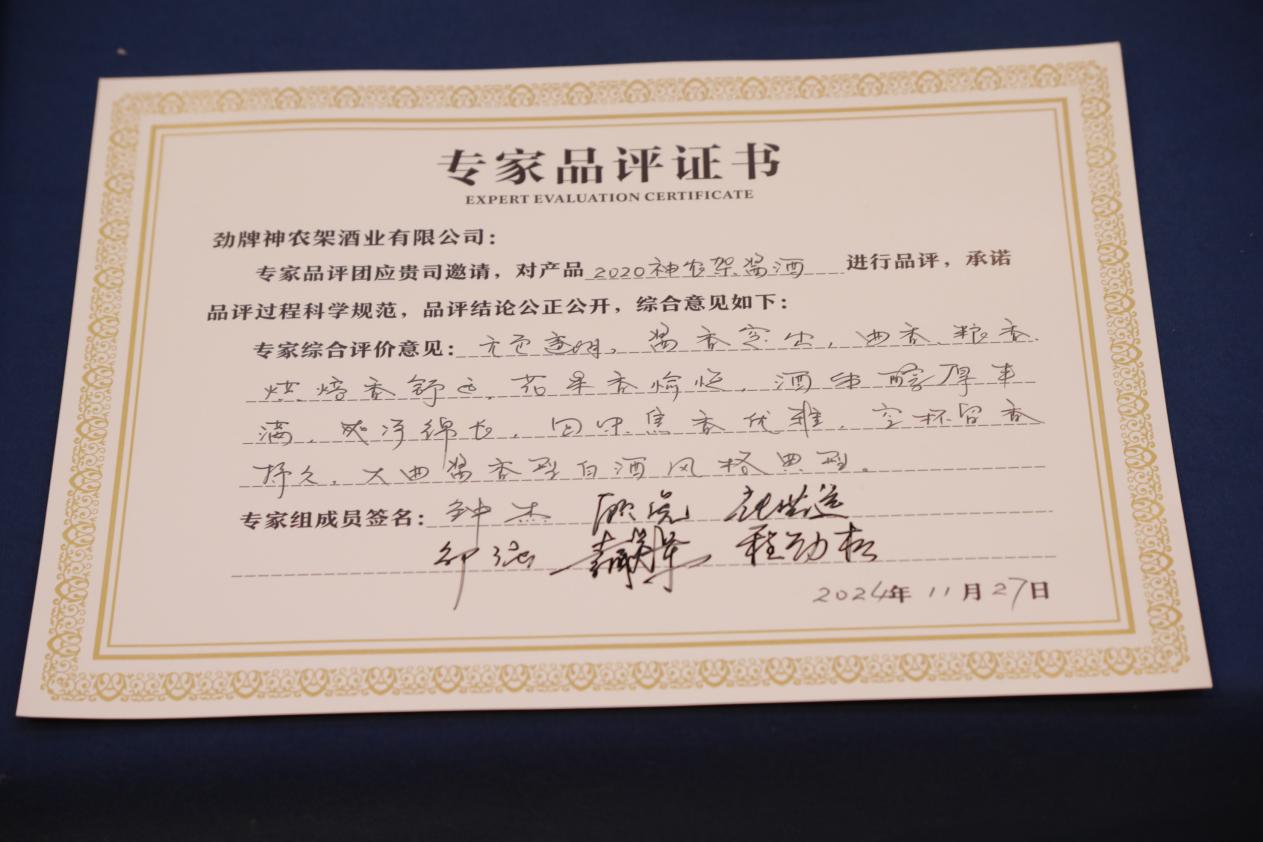 专家品评证书
EXPERT EVALUATION CERTIFICATE
劲牌神农架酒业有限公司：
专家品评团应贵司邀请，对产品2020神农架酱酒进行品评，承诺
品评过程科学规范，品评结论公正公开，综合意见如下：
专家综合评价意见：无色透明，酱香突出，曲香、粮香、
烘焙香舒适，花果香愉悦，酒体醇厚丰
满，爽净绵长，回味焦香优雅，空杯留香
持久，大曲酱香型白酒风格典型。
专家组成员签名：钟杰
邹强 程劲松
2024年11月27日